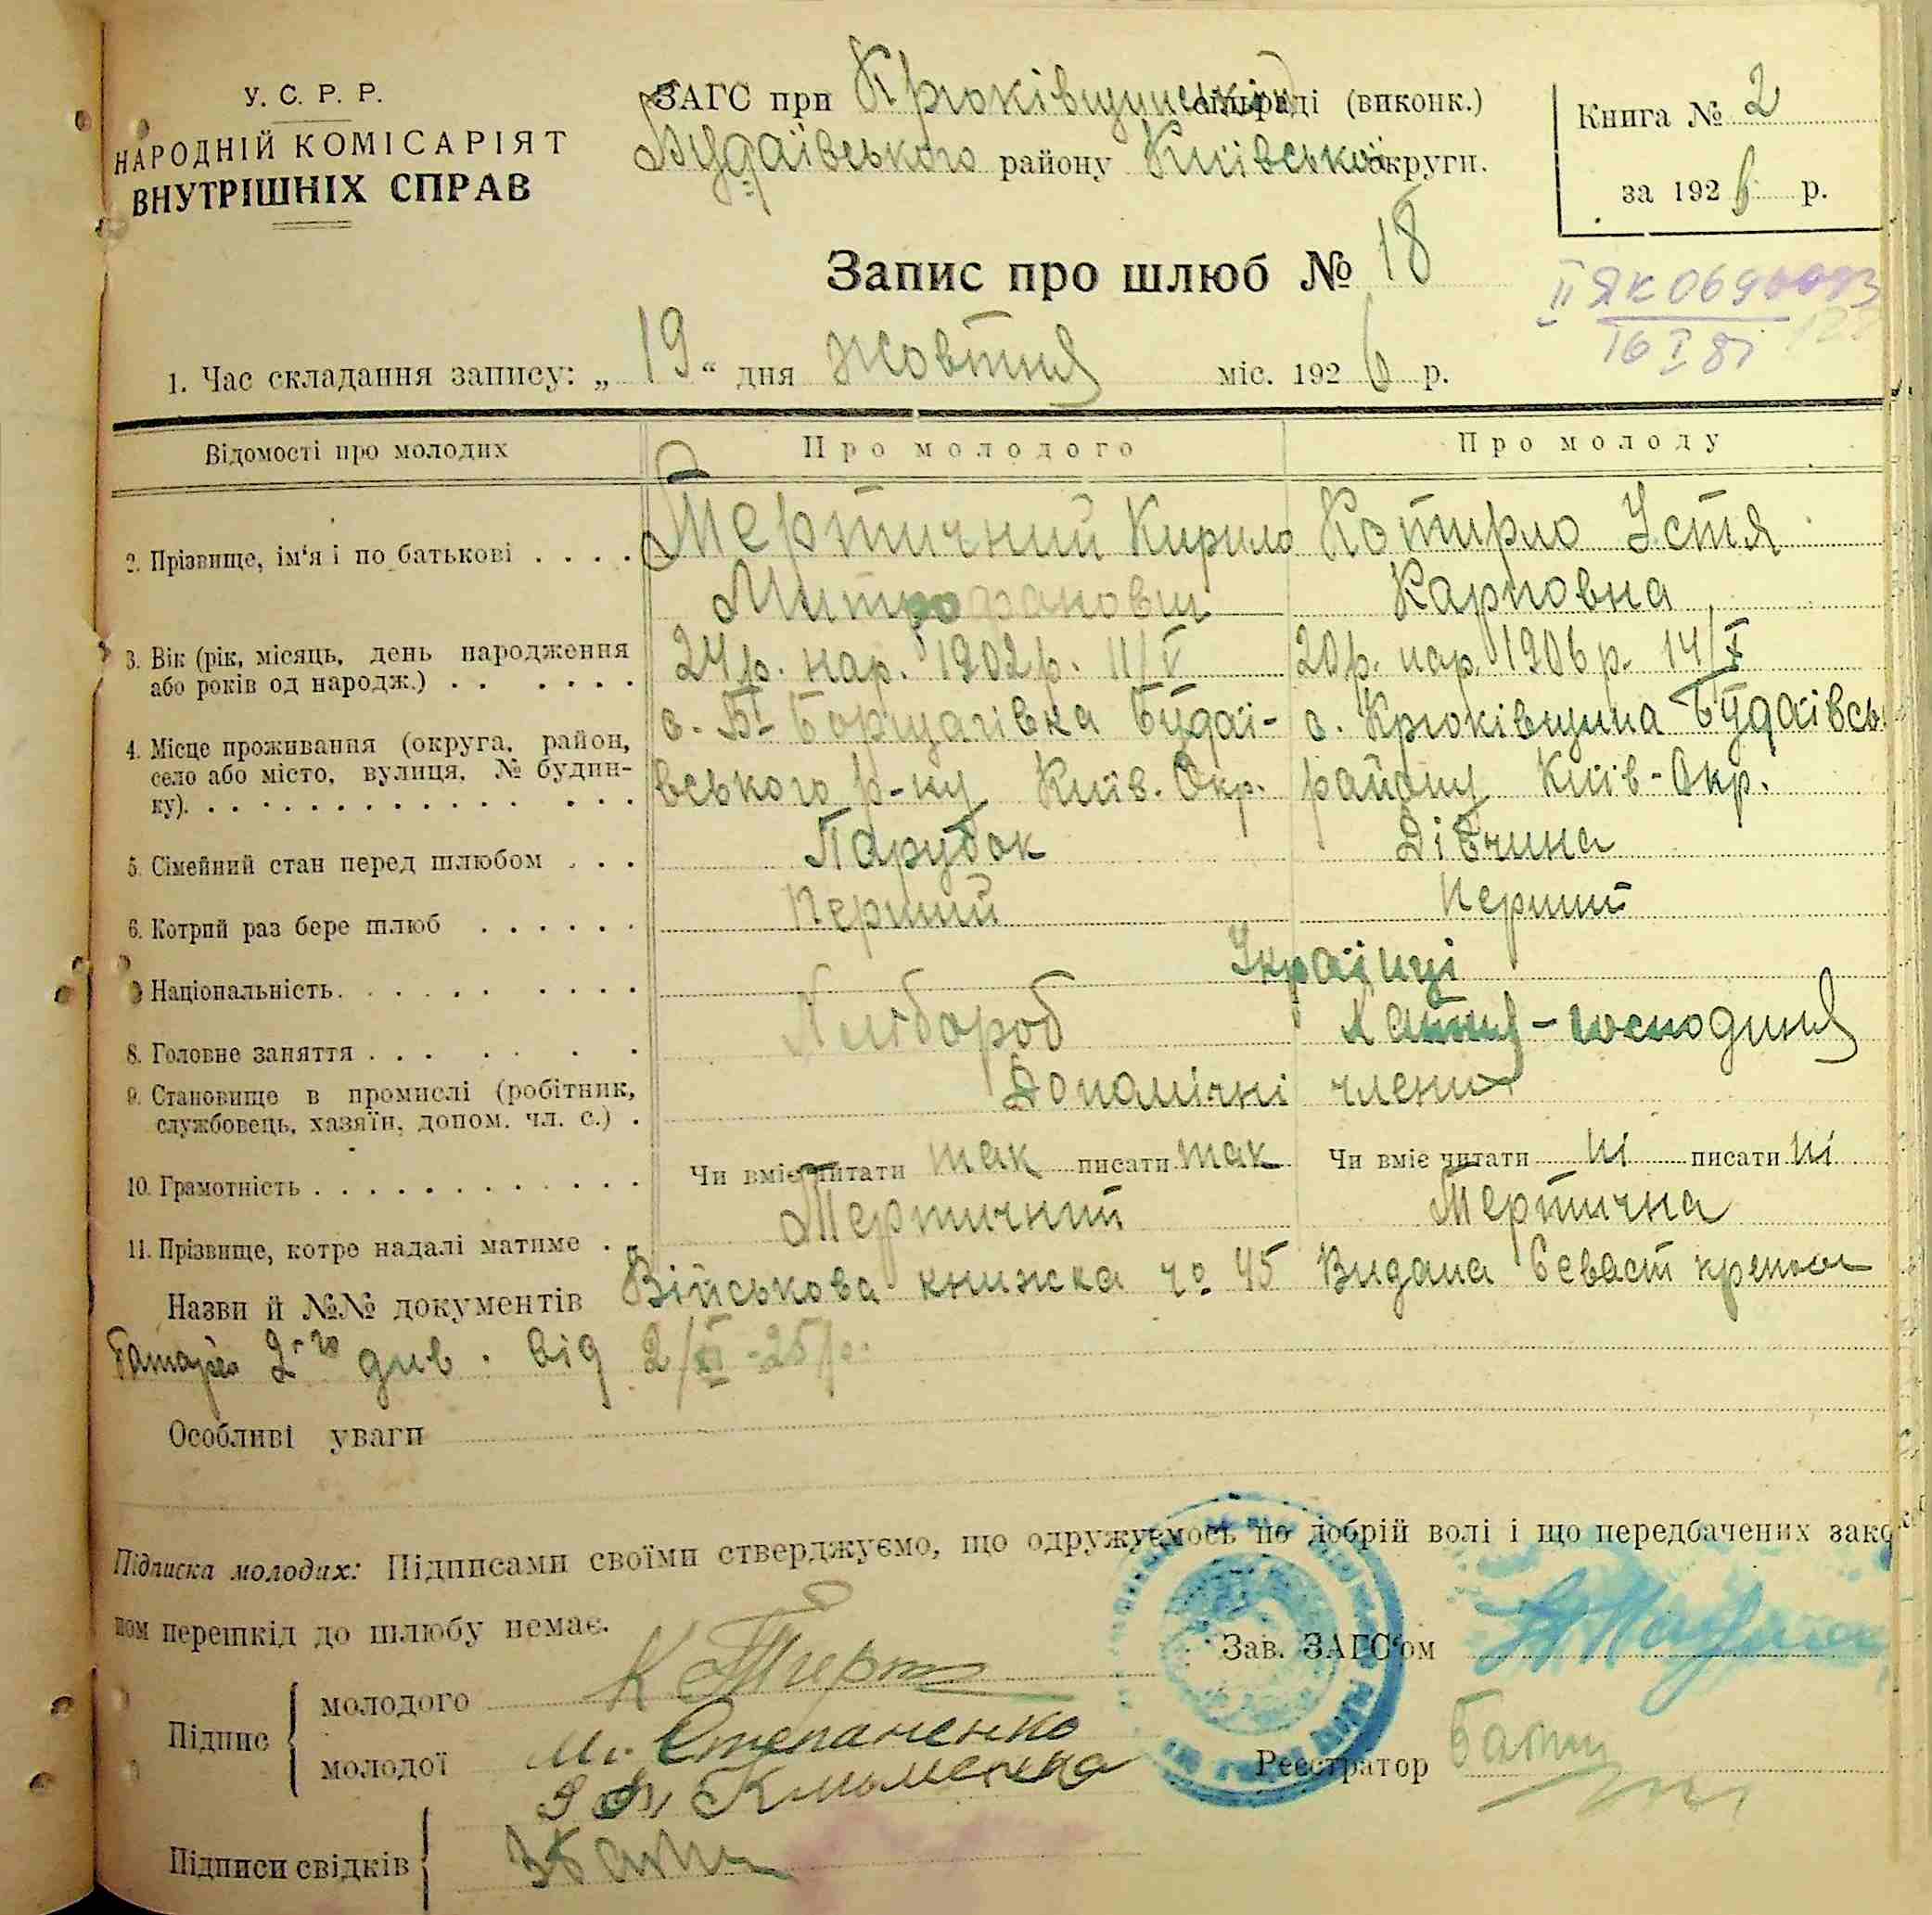 У. С. Р. Р.
НАРОДНІЙ КОМІСАРІЯТ
ВНУТРІШНІХ СПРАВ
ЗАГС при Крюківщинській сільраді (виконк.)
Будаївського району Київської округи.
Книга № 2
за 1926 р.
Запис про шлюб № 18
II ЯК
16 I 81
1. Час складання запису: „19“ дня жовтня міс. 1926 р.
Відомості про молодих Про молодого Про молоду
2. Прізвище, ім‘я і по батькові . . . . Тертичний Кирило Котирло Устя
Митрофанович Карповна
3. Вік (рік, місяць, день народження 24 р. нар. 1902 р. 11/V 20 р. нар. 1906 р. 14/X
або років од народж.)
4. Місце проживання (округа, район, с. Борщагівка Будаї- с. Крюківщина Будаївсь
село або місто, вулиця, № будин- вського р-ну Київ. Окр. району Київ-Окр.
ку).
5. Сімейний стан перед шлюбом . . . Парубок Дівчина
6. Котрий раз бере шлюб Перший Перший
Національність. Українці
8. Головне заняття Хлібороб Хатня-господиня
9. Становище в промислі (робітник, Допомічні члени
службовець, хазяїн, допом. чл. с.) .
10. Грамотність Чи вміє читати так писати так Чи вміє читати ні писати ні
11. Прізвище, котре надалі матиме . . Тертичний Тертична
Назви й №№ документів Військова книжка ч. 45 Видана Севаст
2-го див. від 2/XI-25 р.
Особливі уваги
Підписка молодих: Підписами своїми стверджуємо, що одружуємось по добрій волі і що передбачених зако
ном перешкід до шлюбу немає.
Зав. ЗАГС‘ом
Підпис молодого К Терт
молодої М. Степаненко
Реєстратор
Підписи свідків